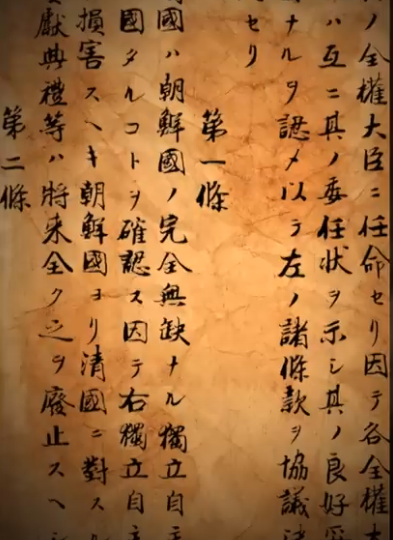 ノ全權大臣ニ任命セリ因テ各全權大
ハ互ニ其ノ委任狀ヲ示シ其ノ良好
ナルヲ認メ以テ左ノ諸條款ヲ協議
セリ
第一條
國ハ朝鮮國ノ完全無缺ナル獨立自
國タルコトヲ確認ス因テ右獨立自
損害スヘキ朝鮮國ヨリ清國ニ對スル
獻典禮等ハ將来全ク之ヲ廢止スヘ
第二條